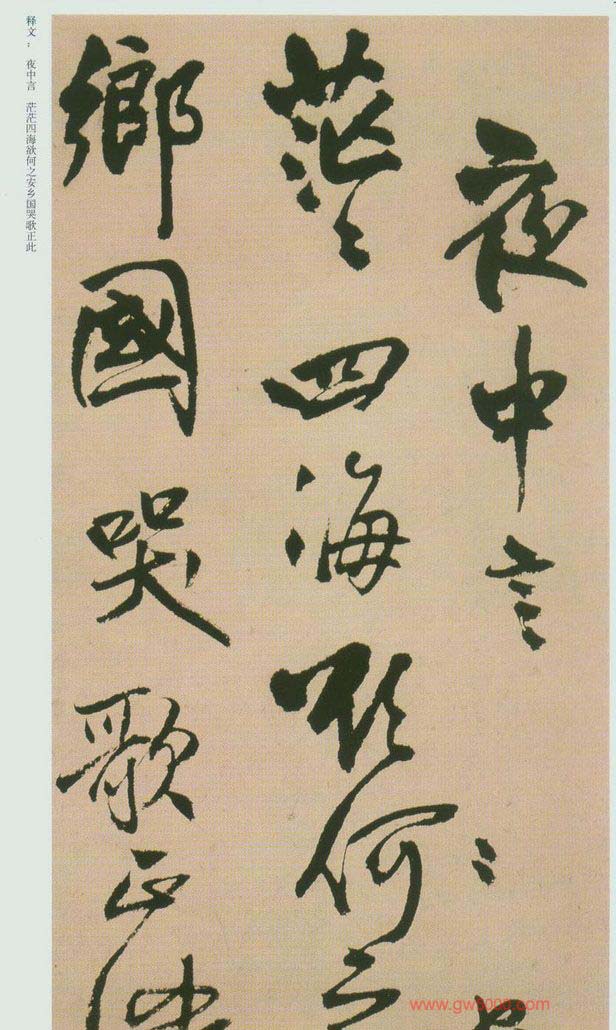 释文： 夜中言 茫茫四海欲何之安乡国哭歌正此
夜中言
茫〻四海欲何之
鄉國哭歌正